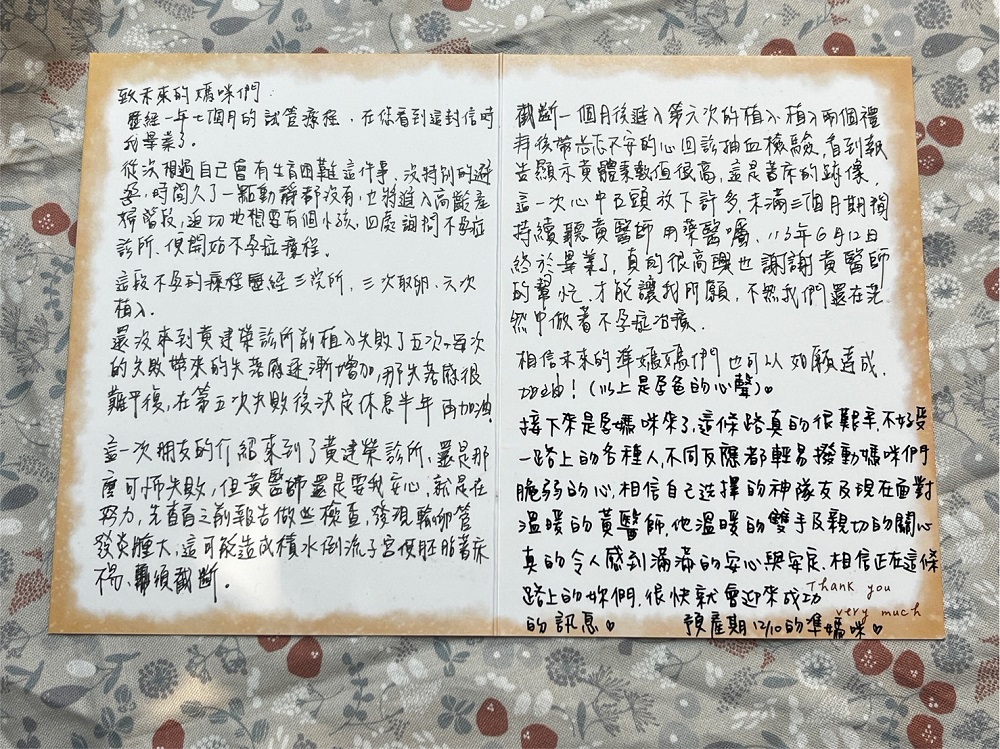 致未來的媽咪們：
歷經一年七個月的試管療程，在你看到這封信時
我畢業了。
從沒想過自己會有生育困難這件事、沒特別的避
孕，時間久了一點動靜都沒有，也將進入高齡產
婦階段，迫切地想要有個小孩、四處詢問不孕症
診所、便開始不孕症療程。
這段不孕的療程歷經三院所，三次取卵、六次
植入。
還沒來到黃建榮診所前植入失敗了五次，每次
的失敗帶來的失落感逐漸增加，那失落感很
難平復，在第五次失敗後決定休息半年 再加油
這一次朋友的介紹來到了黃建榮診所、還是那
麼可怕失敗，但黃醫師還是要我安心，就是在
努力，先查看之前報告做些檢查，發現輸卵管
發炎腫大，這可能造成積水倒流子宮使胚胎著床
不易、需須截斷。
截斷一個月後進入第六次的植入、植入兩個禮
拜後帶忐忑不安的心回診抽血檢驗，看到報
告顯示黃體素數值很高，這是著床的跡象，
這一次心中石頭放下許多，未滿三個月期間
持續聽黃醫師用藥醫囑、113年6月12日
終於畢業了，真的很高興也謝謝黃醫師
的幫忙，才能讓我所願，不然我們還在茫
然中做著不孕症治療．
相信未來的準媽媽們也可以如願達成．
加油！（以上是孕爸的心聲）♡
接下來是孕媽咪來了，這條路真的很艱辛，不好受
一路上的各種人，不同反應都輕易撥動媽咪們
脆弱的心，相信自己選擇的神隊友及現在面對
溫暖的黃醫師，他溫暖的雙手及親切的關心
真的令人感到滿滿的安心與安定，相信正在這條
路上的妳們，很快就會迎來成功
的訊息♡ 預產期12/10的準媽咪♡
Thank you
very much